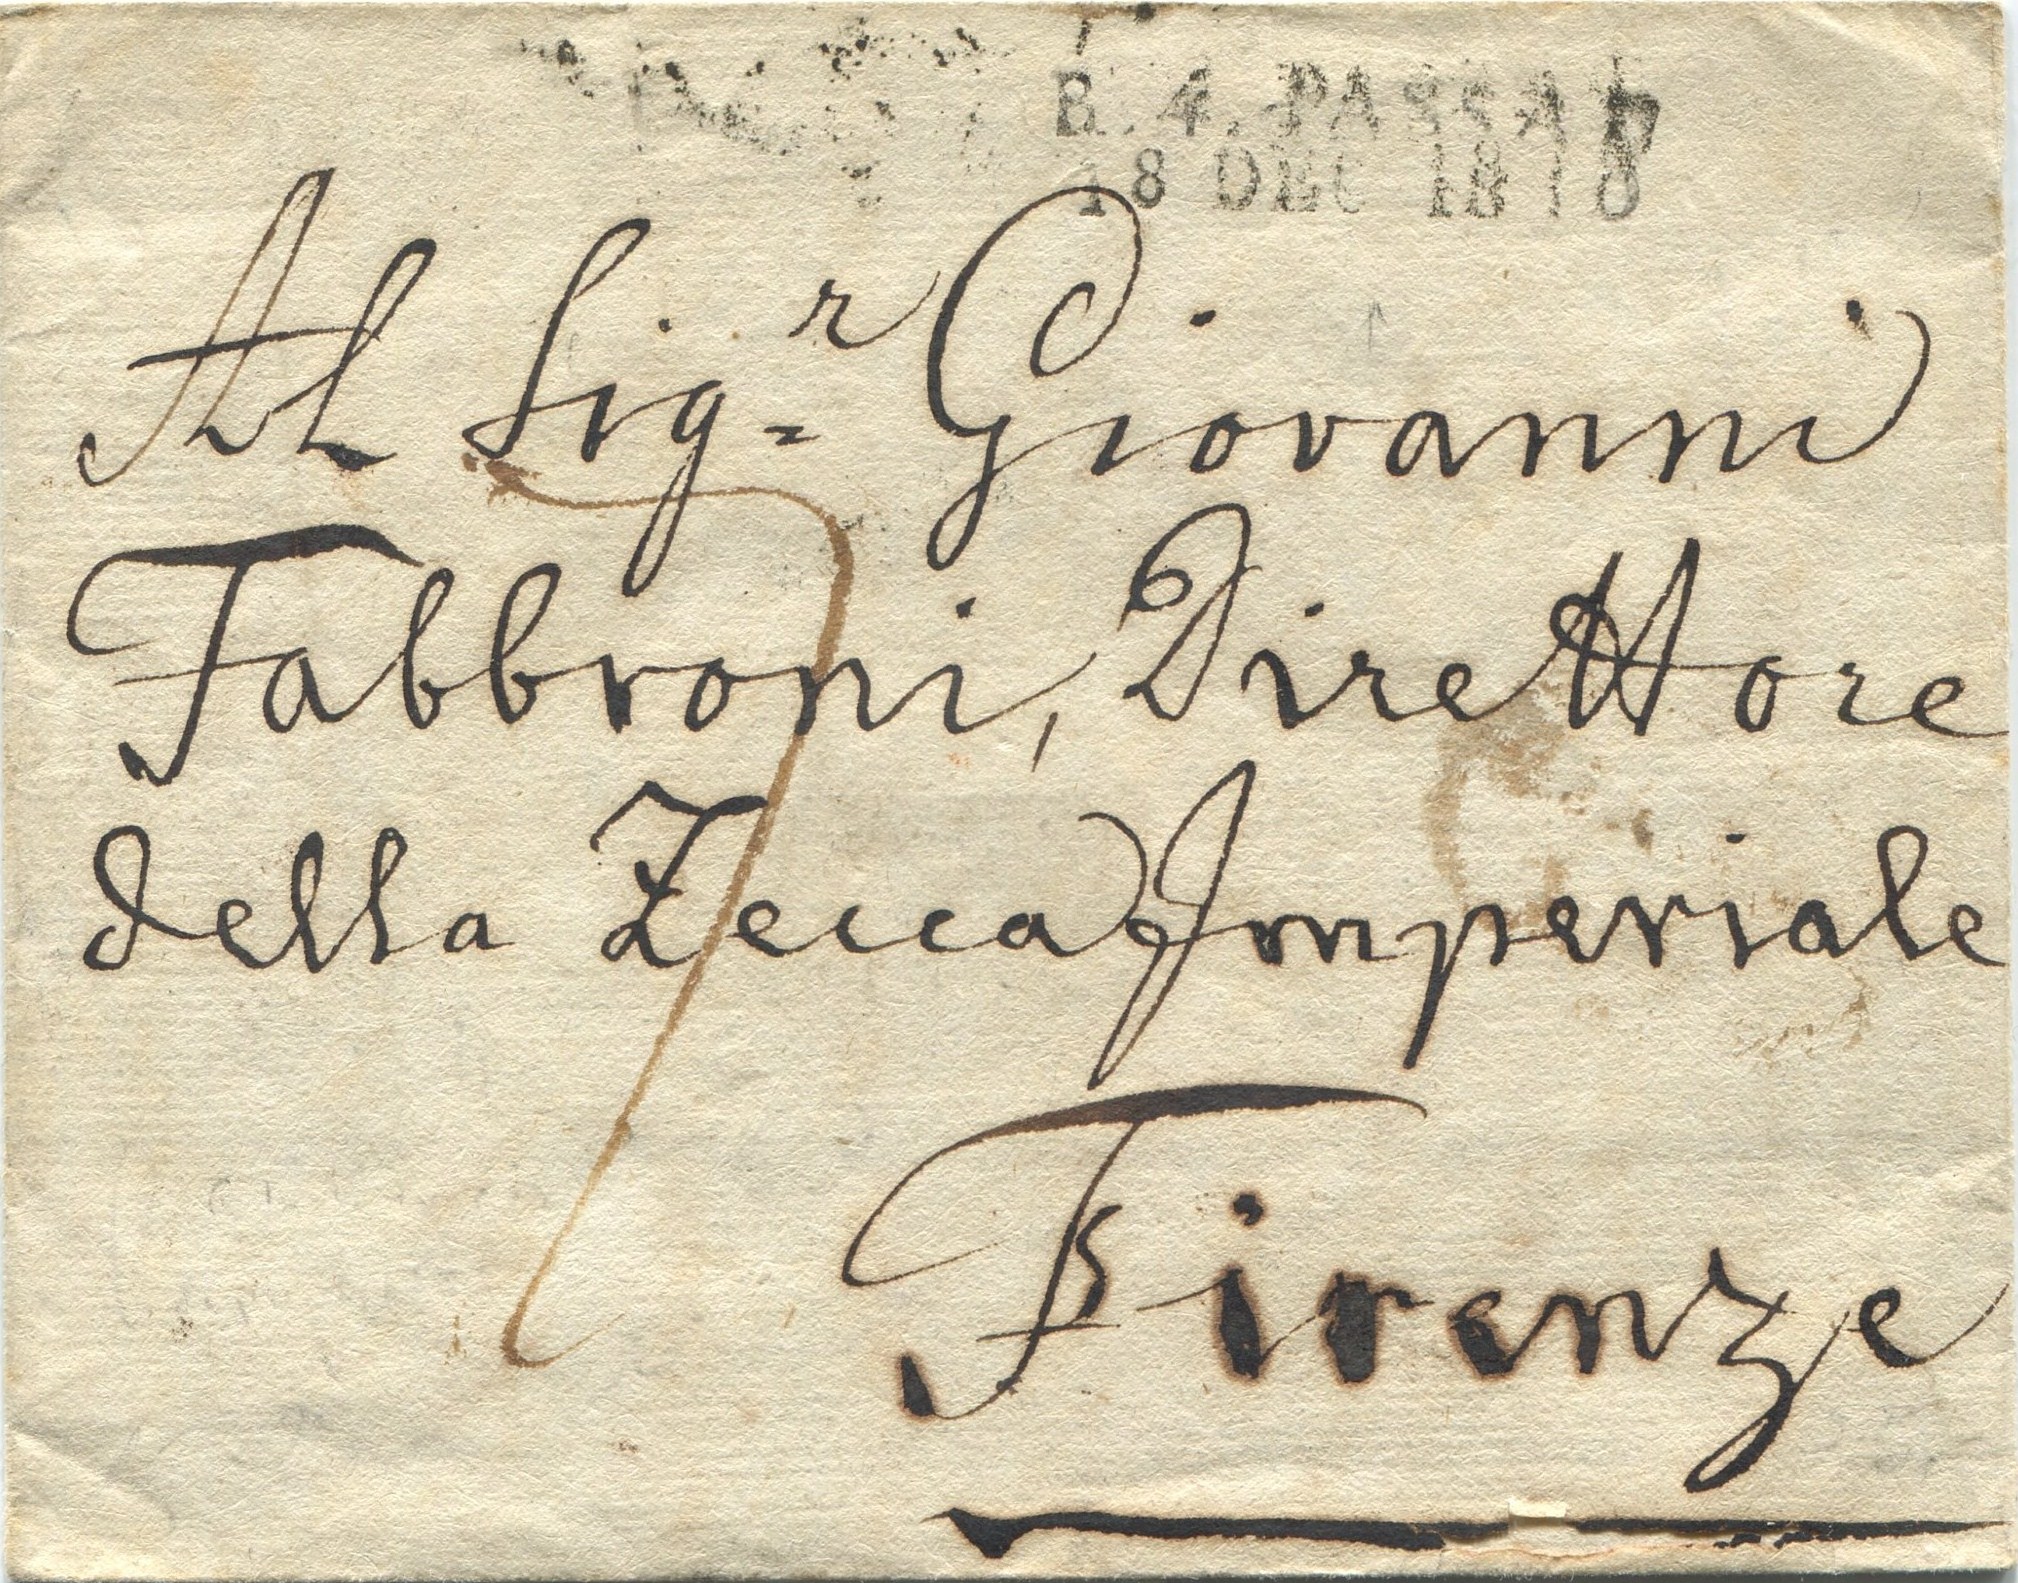 R. 4. PASSAU
18 DEC 1810
Al Sig.r Giovanni
Fabbroni, Direttore
della Zecca Imperiale
Firenze
7